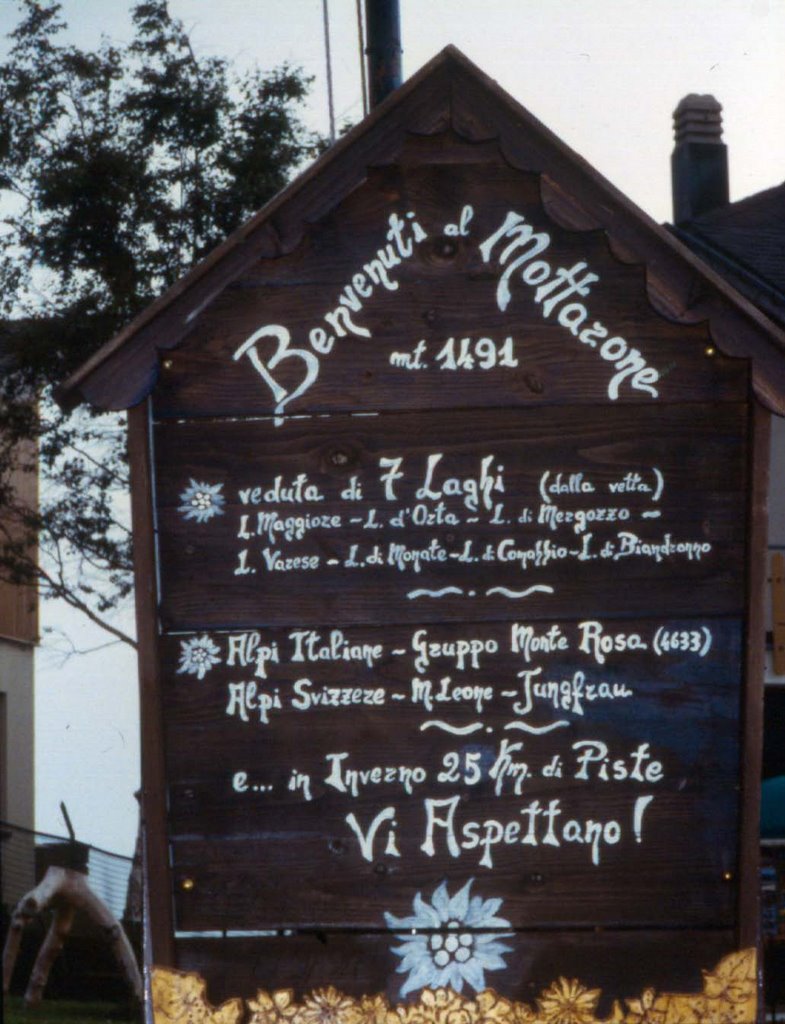 Benvenuti al Mottarone
mt. 1491
veduta di 7 Laghi (dalla vetta)
L. Maggiore - L. d'Orta - L. di Mergozzo -
L. Varese - L. di Monate - L. di Comabbio - L. di Biandronno
Alpi Italiane - Gruppo Monte Rosa (4633)
Alpi Svizzere - M. Leone - Jungfrau
e... in Inverno 25 Km. di Piste
Vi Aspettano!